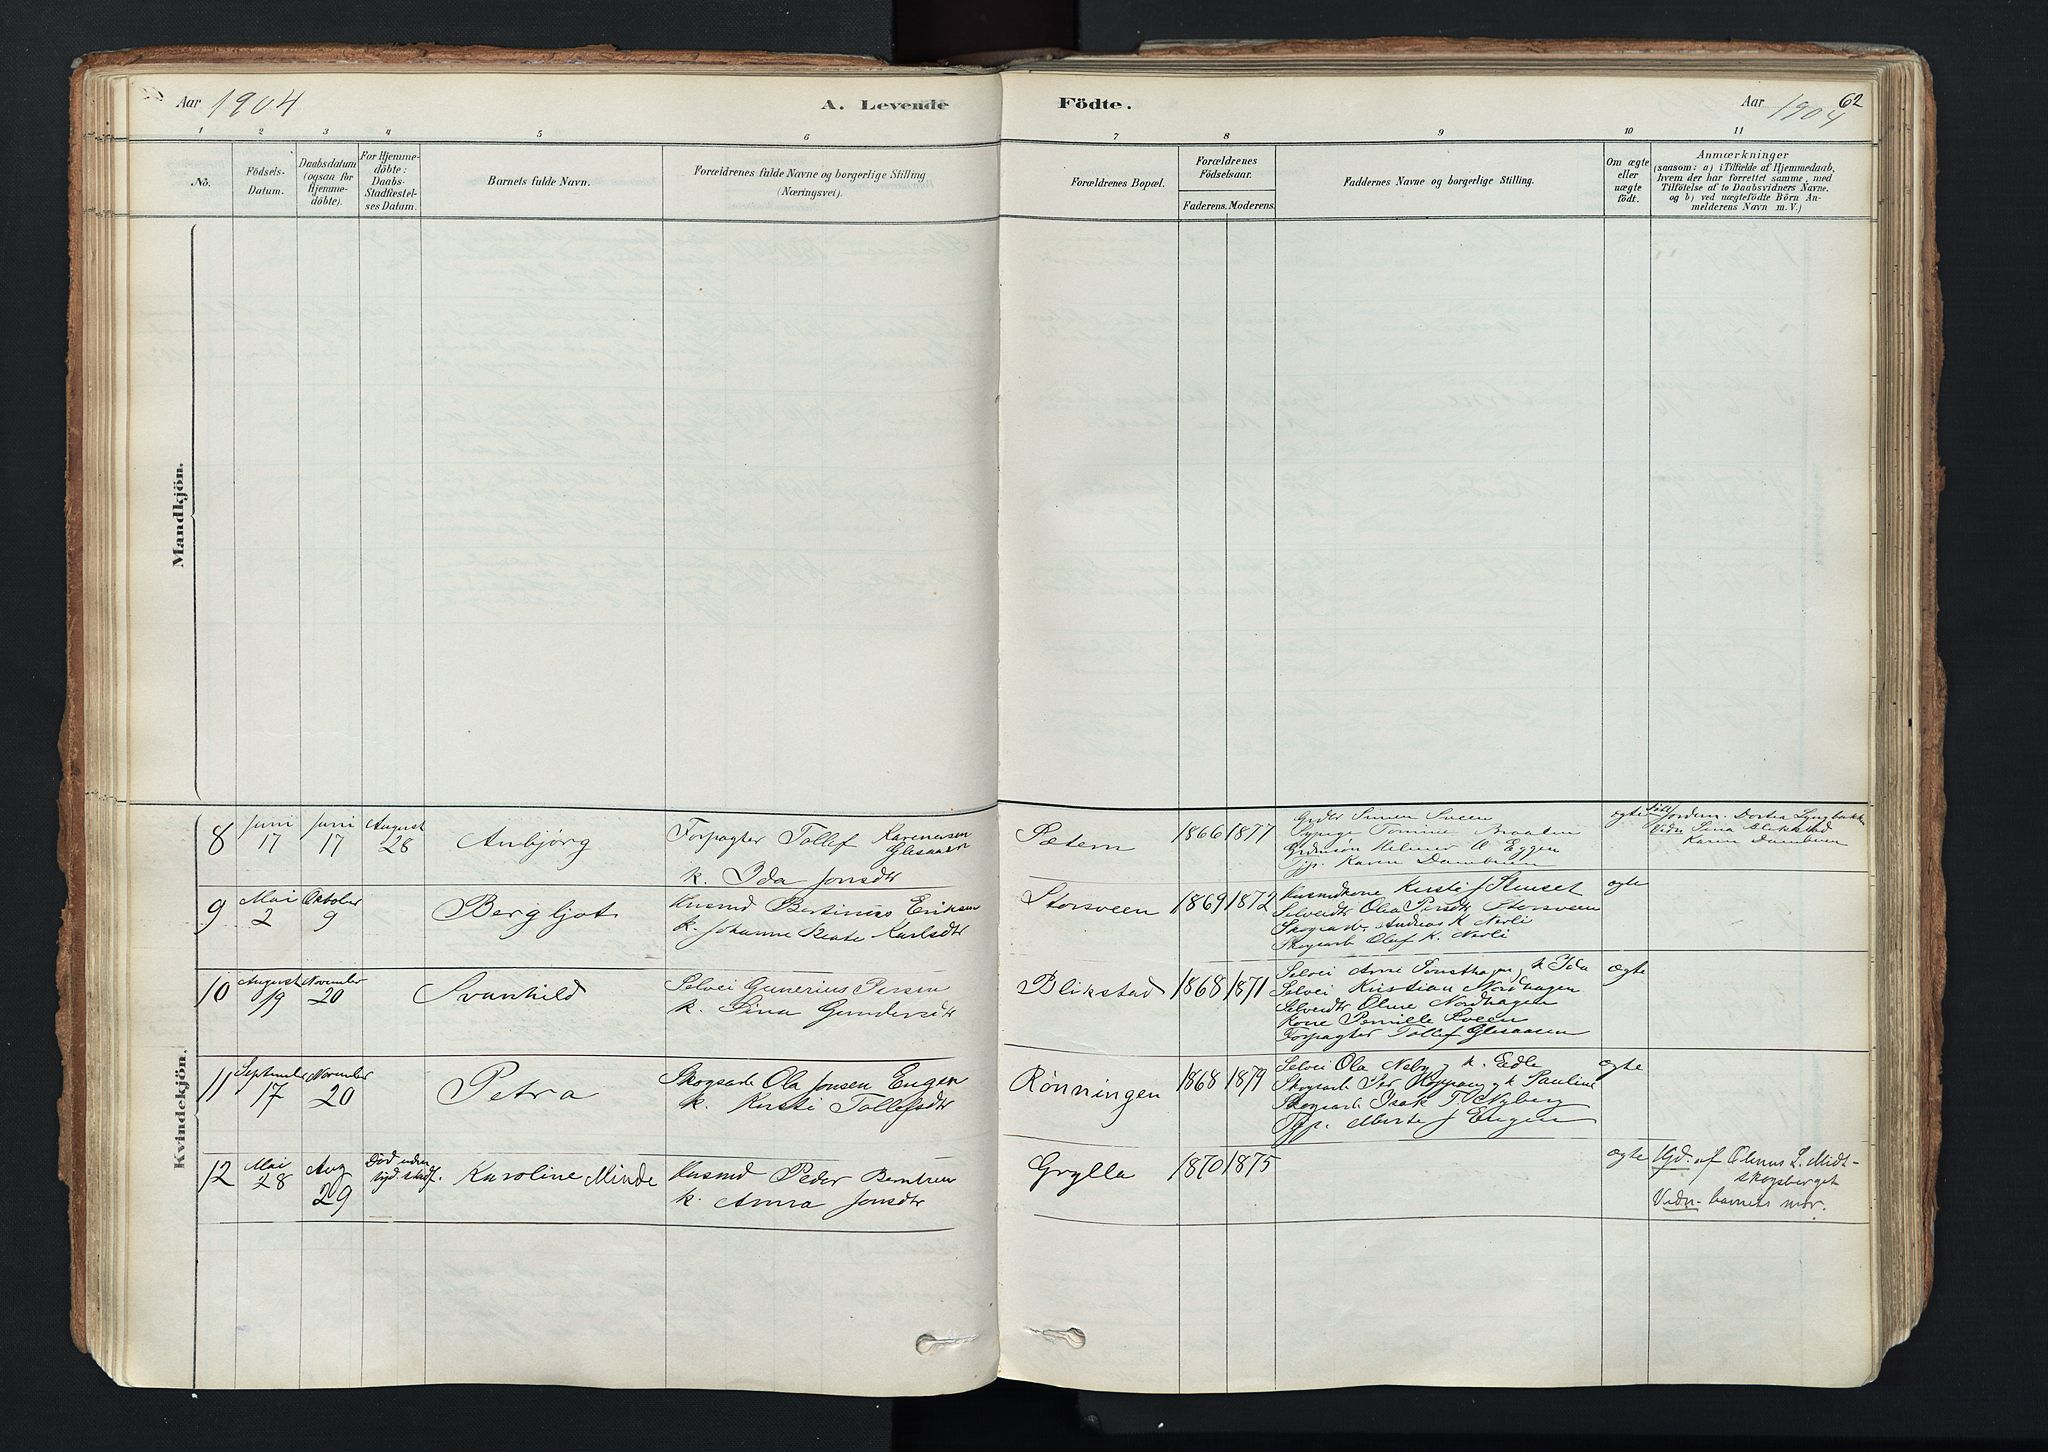 Aar 1904
A. Levende
Födte.
Aar 1904
62
1 2 3 4 5 6 7 8 9 10 11
No.
Födsels-
Datum.
Daabsdatum
(ogsaa for
Hjemme-
döbte).
For Hjemme-
döbte:
Daabs-
Stadfæstel-
ses Datum.
Barnets fulde Navn.
Forældrenes fulde Navne og borgerlige Stilling
(Næringsvei).
Forældrenes Bopæl.
Forældrenes
Födselsaar.
Faderens. Moderens.
Faddernes Navne og borgerlige Stilling.
Om ægte
eller
uægte
födt.
Anmærkninger
(saasom: a) i Tilfælde af Hjemmedaab,
hvem der har forrettet samme, med
Tilföielse af to Daabsvidners Navne.
og b) ved uægtefödte Börn An-
melderens Navn m. V.)
Mandkjön.
Kvindekjön.
8
Juni
17
Juni
17
August
28
Anbjørg
Forpagter Tollef Karenusen
Glesaaen
k. Ida Jonsdtr
Sætern
1866 1877
Simen Sveen
Braaten
Helmer Eggen
Karen Dambraaten
ægte
Jordem. Dortea Lyngbakken
Vidn Sina Blikstad
Karen
9
Mai
2
Oktober
9
Bergljot
Husmd Bertinius Eriksen
k. Johanne Beate Karlsdtr
Storsveen
1869 1872
Husmdkone Kirsti J Stenset
Selveidtr Olea Persdtr Storsveen
Skogsarb. Andreas K Nerli
Skogsarb Oluf K. Nerli
ægte
10
August
19
November
20
Svanhild
Selvei Gunerius Persen
k. Sina Gundersdtr
Blikstad
1868 1871
Selvei Arne k Ida
Selvei Kristian Nordhagen
Selveidtr Oline Nordhagen
Kone Pernille Sveen
Forpagter Tollef Glesaaen
ægte
11
September
17
November
20
Petra
Skogsarb Ola Jonsen Engen
k. Kirsti Tollefsdtr
Rønningen
1868 1879
Selvei Ola Neby k. Edle
Skogsarb Per Koppang k Pauline
Skogsarb Isak T Nyberg
Tjp. Marte J Engen
ægte
12
Mai
28
Aug
29
Død uden
kyd. stadf.
Karoline Minde
Husmd Peder Berntsen
k. Anna Jonsdtr
Grylla
1870 1875
ægte
Hjd. af Olenus L. Midt-
skogsberget
Vidn- barnets mor.